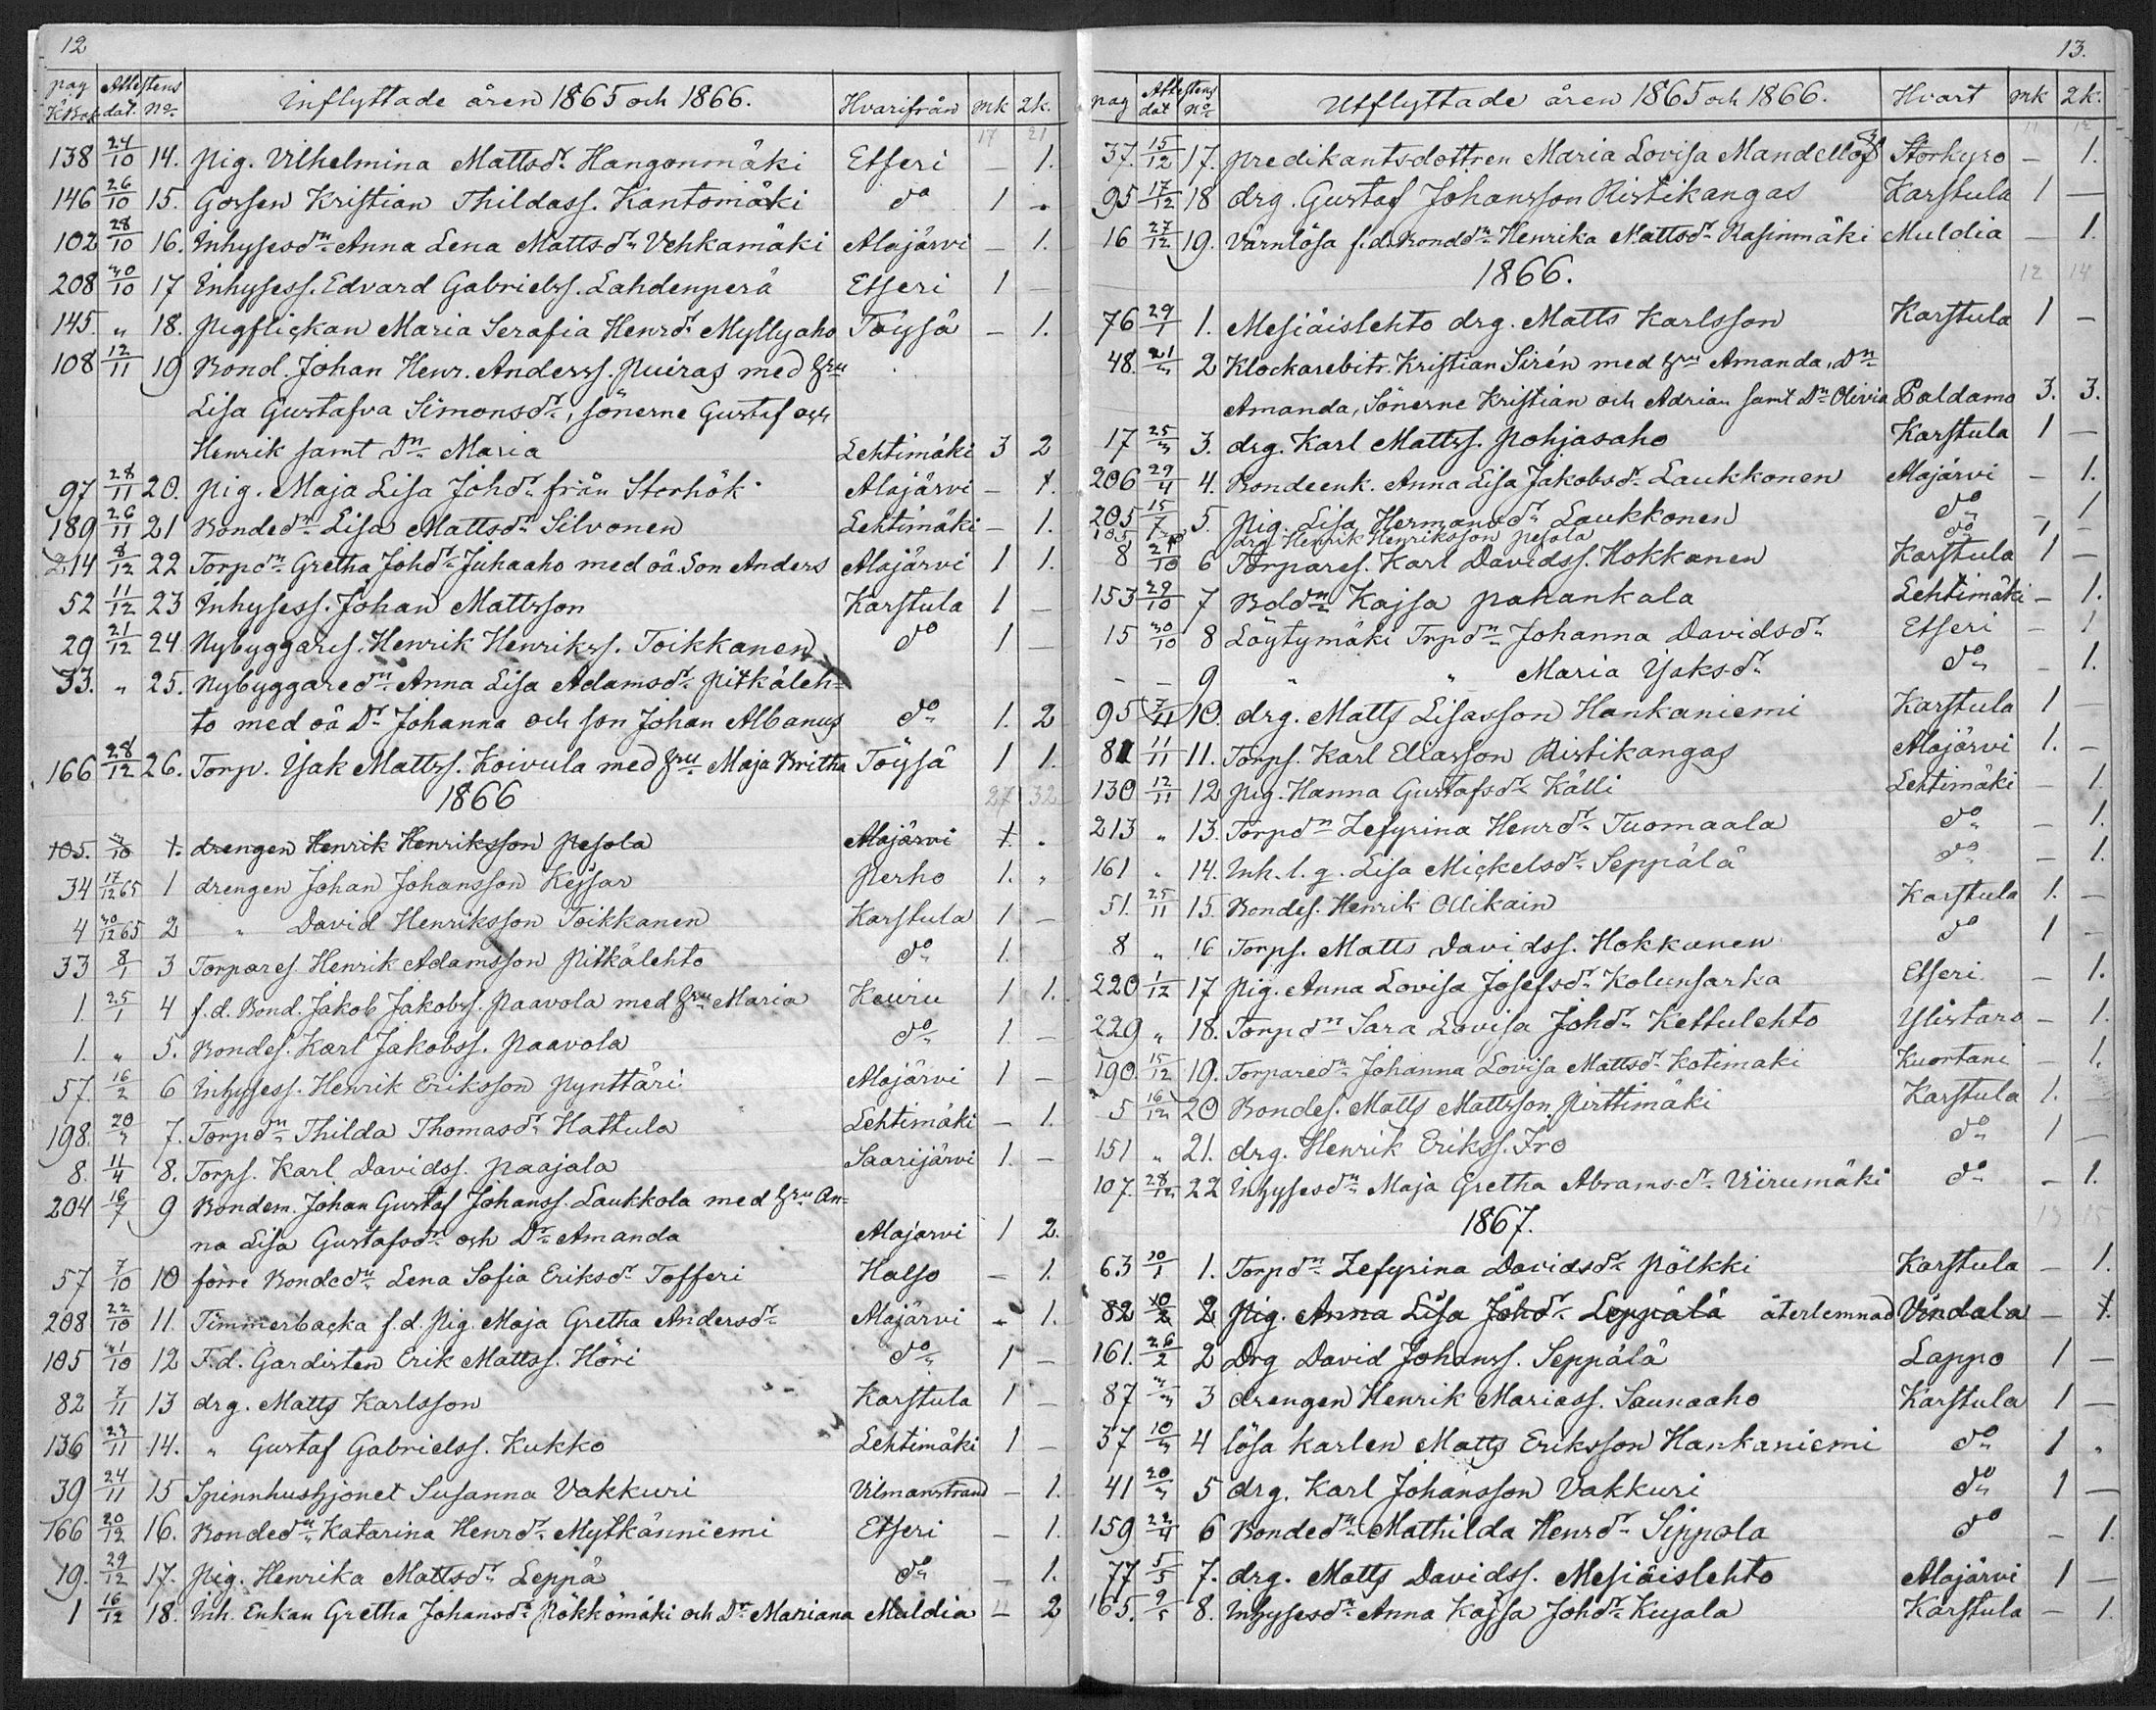 12
pag KBok Attestens dat. No Inflyttade åren 1865 och 1866. Hvarifrån mk 2k.
17 21
138 24/10 14. Pig. Vilhelmina Mattsdr Hangonmäki Etseri — 1.
146 26/10 15. Gossen Kristian Thildass. Kantomäki do 1 -
102 28/10 16. Inhysesdn Anna Lena Mattsdr Vehkamäki Alajärvi — 1.
208 30/10 17 Inhysess. Edvard Gabrielss. Lahdenperä Etseri 1 —
145. " 18. Pigflickan Maria Serafia Henrdr Myllyaho Töysä — 1.
108 12/11 19 Bond. Johan Henr. Anderss. Puiras med hru
Lisa Gustafva Simonsdr, sönerne Gustaf och
Henrik samt Dn Maria Lehtimäki 3 2
97 28/11 20. Pig. Maja Lisa Johdr från Storhök Alajärvi — 1.
189 26/11 21 Bondedn Lisa Mattsdr Silvonen Lehtimäki — 1.
214 8/12 22 Torpdn Gretha Johdr Juhaaho med oä. Son Anders Alajärvi 1 1.
52 11/12 23 Inhysess. Johan Mattsson Karstula 1 —
29 21/12 24. Nybyggares. Henrik Henrikss. Toikkanen do 1 —
33. " 25. Nybyggaredn Anna Lisa Adamsdr Pitkäleh=
to med oä Dr Johanna och son Johan Albanus do 1. 2
166 28/12 26. Torp. Isak Mattss. Koivula med hru Maja Britha Töysä 1 1.
1866 27 32
105. 3/10 1. drengen Henrik Henriksson Pesola Alajärvi 1. -
34 17/12 65 1 drengen Johan Johansson Kejsar Perho 1. "
4 30/12 65 2 " David Henriksson Toikkanen Karstula 1 —
33 8/1 3 Torpares. Henrik Adamsson Pitkälehto do 1.
1. 25/1 4 f.d. Bond. Jakob Jakobss. Paavola med hru Maria Keuru 1 1.
1. " 5. Bondes. Karl Jakobss. Paavola do 1 —
57. 16/2 6 Inhysess. Henrik Eriksson Pynttäri Alajärvi 1 —
198. 20/3 7. Torpdn Thilda Thomasdr Hattula Lehtimäki — 1.
8. 11/4 8. Torps. Karl Davidss. Paajala Saarijärvi 1. —
204 16/7 9 Bondem. Johan Gustaf Johanss. Laukkola med hru An=
na Lisa Gustafsdr och Dr Amanda Alajarvi 1 2.
57 7/10 10 förre Bondedn Lena Sofia Eriksdr Tofferi Halso — 1.
208 22/10 11. Timmerbacka f.d. Pig. Maja Gretha Andersdr Alajärvi - 1.
105 31/10 12 F.d. Gardisten Erik Mattss. Höri do 1 —
82 7/11 13 drg. Matts Karlsson Karstula 1 —
136 23/11 14. " Gustaf Gabrielss. Kukko Lehtimäki 1 —
39 24/11 15 Spinnhushjonet Susanna Vakkuri Vilmanstrand — 1.
166 20/12 16. Bondedn Katarina Henrdr Mytkänniemi Etseri — 1.
19. 29/12 17. Pig. Henrika Mattsdr Leppä do — 1.
1 16/12 18. Inh. Enkan Gretha Johansdr Rökkömäki och Dr Mariana Muldia — 2
13.
pag Attestens dat No Utflyttade åren 1865 och 1866. Hvart mk 2k.
11 12
37. 15/12 17. predikantsdottren Maria Lovisa Mandellöf Storkyro — 1.
95 17/12 18 drg. Gustaf Johansson Ristikangas Karstula 1 —
16 27/12 19. Värnlösa f.d. Bonddn Henrika Mattsdr Rasinmäki Muldia — 1.
1866. 12 14
76 29/1 1. Mesiäislehto drg. Matts Karlsson Karstula 1 —
48. 21/3 2 Klockarebitr. Kristian Sirén med hru Amanda, Dn
Amanda, Sönerne Kristian och Adrian samt Dn Olivia Paldamo 3. 3.
17 25/3 3. drg. Karl Mattss. Pohjasaho Karstula 1 —
206 29/4 4. Bondeenk. Anna Lisa Jakobsdr Laukkonen Alajärvi — 1.
205 15/7 5. Pig. Lisa Hermansdr Laukkonen do — 1
105 drg. Henrik Henriksson Pesola do 1 —
8 21/10 6 Torpares. Karl Davidss. Hokkanen Karstula 1 —
153 29/10 7 Bddn Kajsa Pahankala Lehtimäki — 1.
15 30/10 8 Löytymäki Trpdn Johanna Davidsdr Etseri — 1
- - 9 " " Maria Isaksdr do — 1.
95 7/11 10. drg. Matts Lisasson Hankaniemi Karstula 1 —
81 11/11 11. Torps. Karl Eliasson Ristikangas Alajärvi 1. —
130 12/11 12 Pig. Hanna Gustafsdr Källi Lehtimäki — 1.
213 " 13. Torpdn Zefyrina Henrdr Tuomaala do — 1.
161 " 14. Inh. l. g. Lisa Mickelsdr Seppälä do — 1.
51. 25/11 15. Bondes. Henrik Ollikain Karstula 1. —
8 " 16 Torps. Matts Davidss. Hokkanen do 1 —
220 1/12 17 Pig. Anna Lovisa Josefsdr Kolunsarka Etseri — 1.
229 " 18. Torpdn Sara Lovisa Johdr Kettulehto Ylistaro — 1.
190. 15/12 19. Torparedn Johanna Lovisa Mattsdr Kotimaki Kuortane — 1.
5 16/12 20 Bondes. Matts Mattsson Pirttimäki Karstula 1.
151 " 21. drg. Henrik Erikss. Fro do 1 —
107. 28/12 22 Inhysesdn Maja Gretha Abramsdr Viirumäki do — 1.
1867. 13 15
63 10/1 1. Torpdn Zefyrina Davidsdr Pölkki Karstula — 1.
82 10/2 2 Pig. Anna Lisa Johdr Leppälä återlemnad Vindala — 1.
161. 26/2 2 Drg David Johanss. Seppälä Lappo 1 —
87 3/3 3 drengen Henrik Mariass. Saunaaho Karstula 1 —
37 10/3 4 lösa karlen Matts Eriksson Hankaniemi do 1 "
41 20/3 5 drg. Karl Johansson Vakkuri do 1 —
159 22/4 6 Bondedn Mathilda Henrdr Sippola do — 1.
77 5/5 7. drg. Matts Davidss. Mesiäislehto Alajärvi 1 —
165. 9/5 8. Inhysesdn Anna Kajsa Johdr Kujala Karstula — 1.